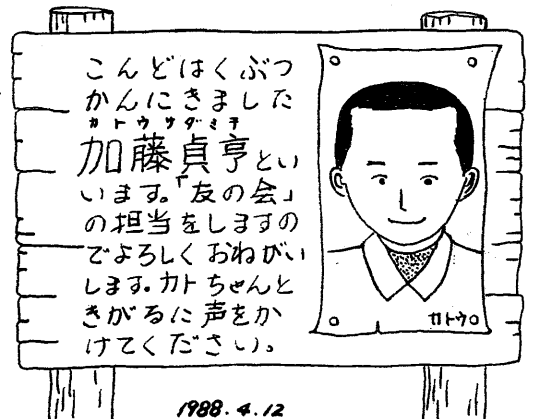 こんどはくぶつ
かんにきました
カトウサダミチ
加藤貞亨とい
います。「友の会」
の担当をしますの
でよろしくおねがい
します。カトちゃんと
きがるに声をか
けてください。
カトウ
1988.4.12